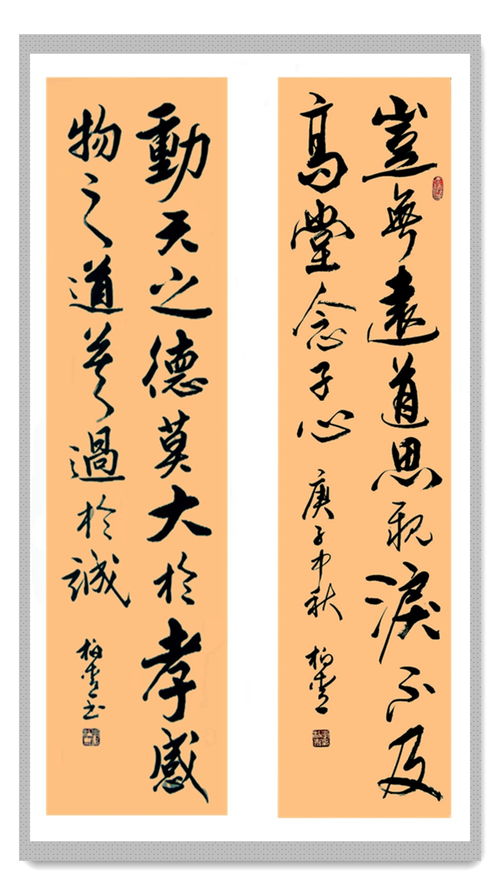 豈無遠道思親淚不及
高堂念子心 庚子中秋
動天之德莫大於孝感
物之道莫過於誠